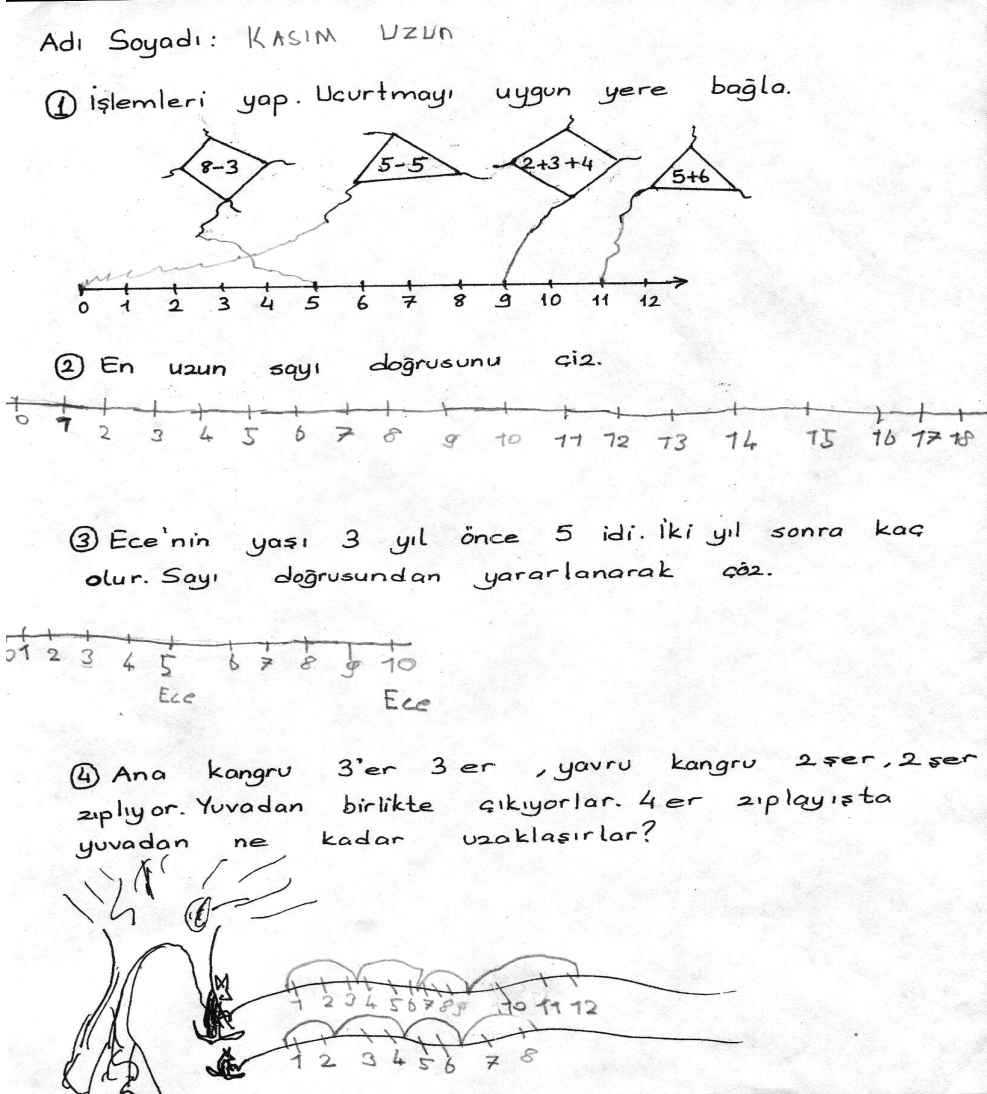 Adı Soyadı: KASIM UZUN
① İşlemleri yap. Uçurtmayı uygun yere bağla.
8-3 5-5 2+3+4 5+6
0 1 2 3 4 5 6 7 8 9 10 11 12
② En uzun sayı doğrusunu çiz.
0 1 2 3 4 5 6 7 8 9 10 11 12 13 14 15 16 17 18
③ Ece'nin yaşı 3 yıl önce 5 idi. İki yıl sonra kaç
olur. Sayı doğrusundan yararlanarak çöz.
0 1 2 3 4 5 6 7 8 9 10
Ece Ece
④ Ana kangru 3'er 3 er , yavru kangru 2 şer, 2 şer
zıplıyor. Yuvadan birlikte çıkıyorlar. 4 er zıplayışta
yuvadan ne kadar uzaklaşırlar?
1 2 3 4 5 6 7 8 9 10 11 12
1 2 3 4 5 6 7 8